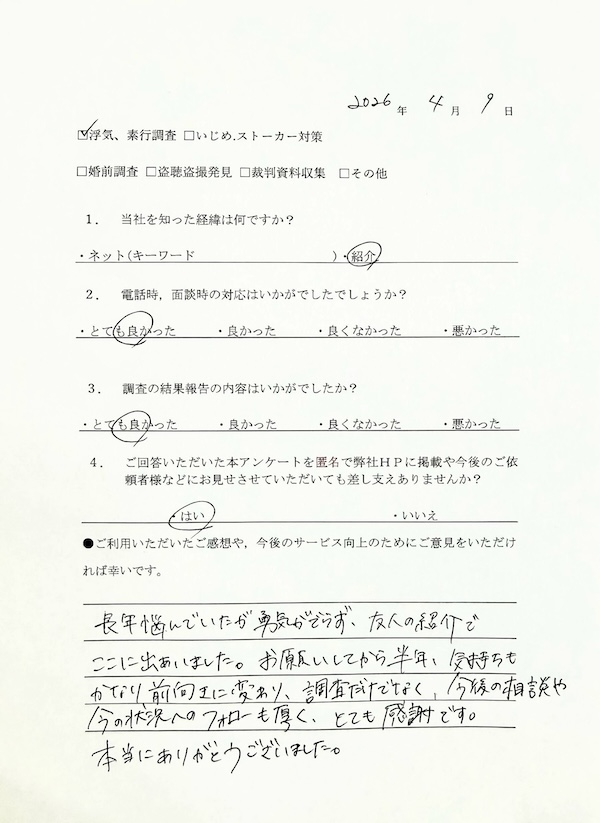 2026年 4月 9日
☑浮気、素行調査 □いじめ.ストーカー対策
□婚前調査 □盗聴盗撮発見 □裁判資料収集 □その他
１． 当社を知った経緯は何ですか？
・ネット(キーワード )・紹介
２． 電話時，面談時の対応はいかがでしたでしょうか？
・とても良かった ・良かった ・良くなかった ・悪かった
３． 調査の結果報告の内容はいかがでしたか？
・とても良かった ・良かった ・良くなかった ・悪かった
４． ご回答いただいた本アンケートを匿名で弊社ＨＰに掲載や今後のご依
頼者様などにお見せさせていただいても差し支えありませんか？
・はい ・いいえ
●ご利用いただいたご感想や，今後のサービス向上のためにご意見をいただけ
れば幸いです。
長年悩んでいたが勇気がでらず、友人の紹介で
ここに出あいました。お願いしてから半年、気持ちも
かなり前向きに変わり、調査だけでなく、今後の相談や
今の状況へのフォローも厚く、とても感謝です。
本当にありがとうございました。